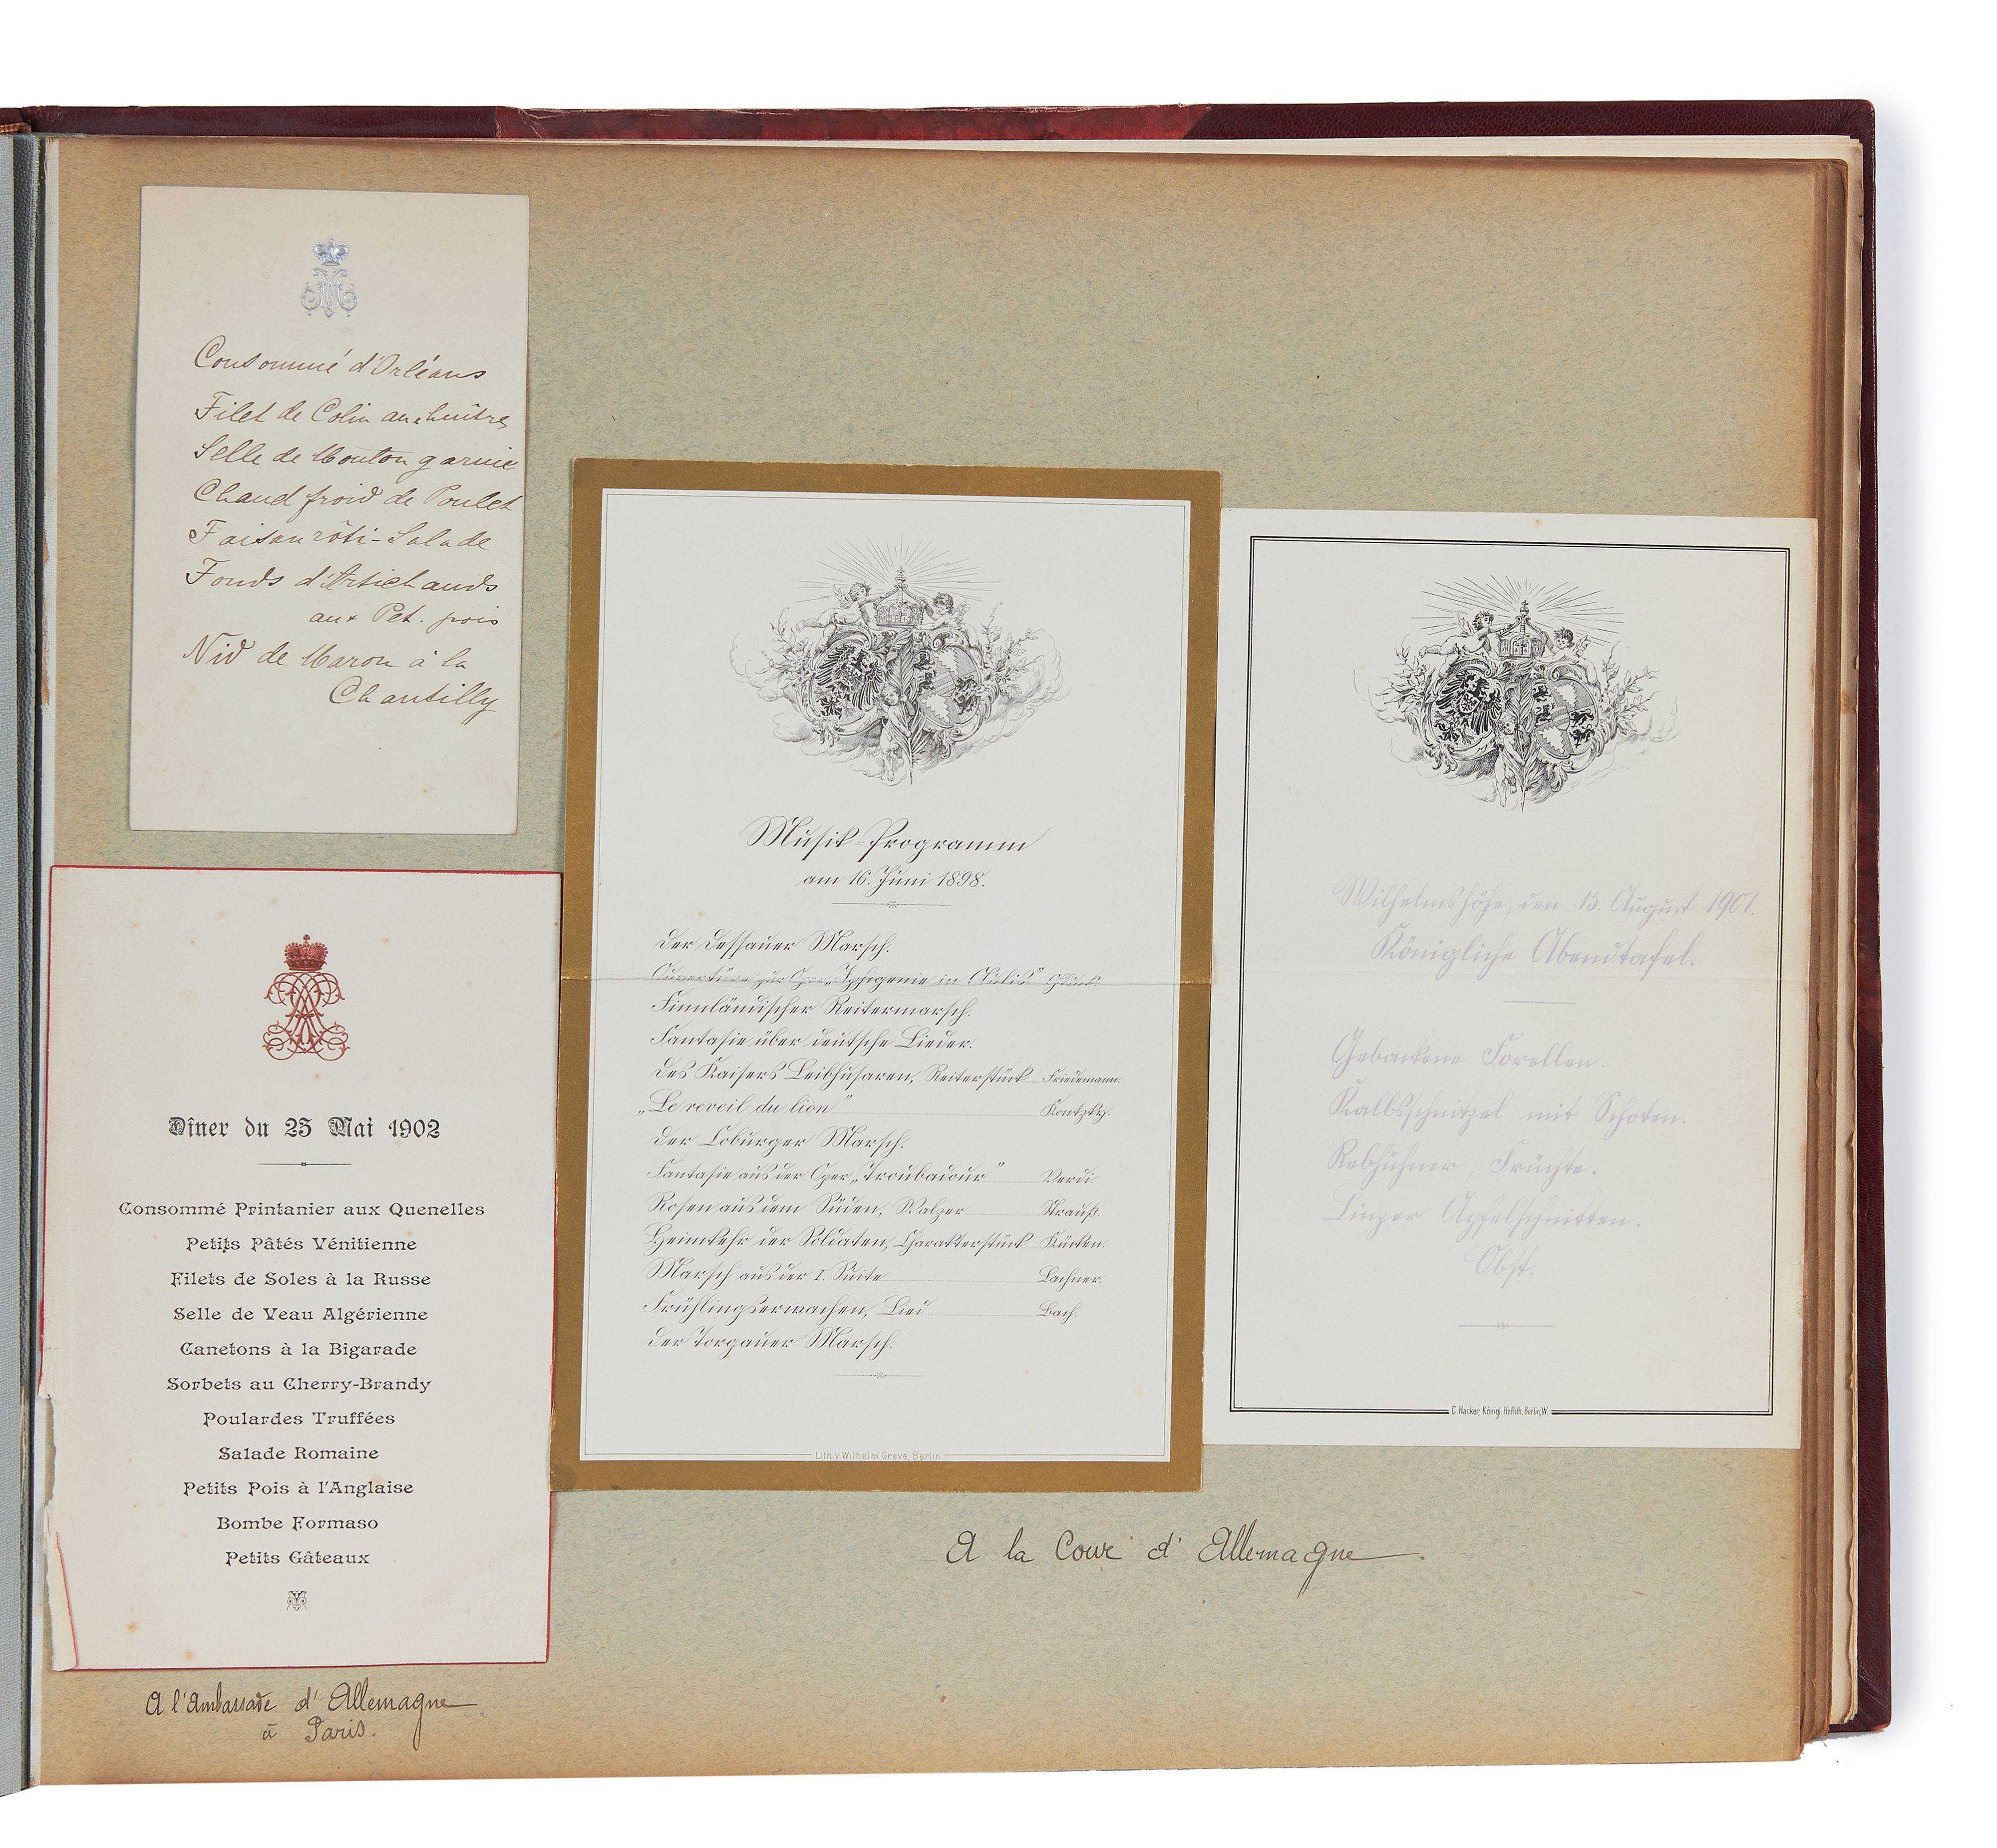 Consommé d'Orléans
Filet de Colin aux huîtres
Selle de Mouton garnie
Chaud froid de Poulet
Faisan rôti - Salade
Fonds d'Artichauds
aux Pet. pois
Nid de Maron à la
Chantilly
Dîner du 25 Mai 1902
Consommé Printanier aux Quenelles
Petits Pâtés Vénitienne
Filets de Soles à la Russe
Selle de Veau Algérienne
Canetons à la Bigarade
Sorbets au Cherry-Brandy
Poulardes Truffées
Salade Romaine
Petits Pois à l'Anglaise
Bombe Formaso
Petits Gâteaux
A l'Ambassade d'Allemagne
à Paris.
Musik-Programm
am 16. Juni 1898.
Der Dessauer Marsch.
Ouvertüre zur Oper „Iphigenie in Aulis" Gluck.
Finnländischer Reitermarsch.
Fantasie über deutsche Lieder.
Des Kaisers Leibhusaren, Reiterstück Friedemann.
„Le reveil du lion" Kontzky.
Der Coburger Marsch.
Fantasie aus der Oper „Troubadour" Verdi.
Rosen aus dem Süden, Walzer Strauß.
Heimkehr der Soldaten, Charakterstück Kücken.
Marsch aus der I. Suite Lachner.
Frühlingserwachen, Lied Bach.
Der Torgauer Marsch.
Lith. v. Wilhelm Greve, Berlin
Wilhelmshöhe, den 15. August 1901.
Königliche Abendtafel.
Gebackene Forellen.
Kalbsschnitzel mit Schoten.
Rebhühner, Früchte.
Linzer Apfelschnitten.
Obst.
C. Hacker, Königl. Hoflith. Berlin, W.
A la Cour d'Allemagne.